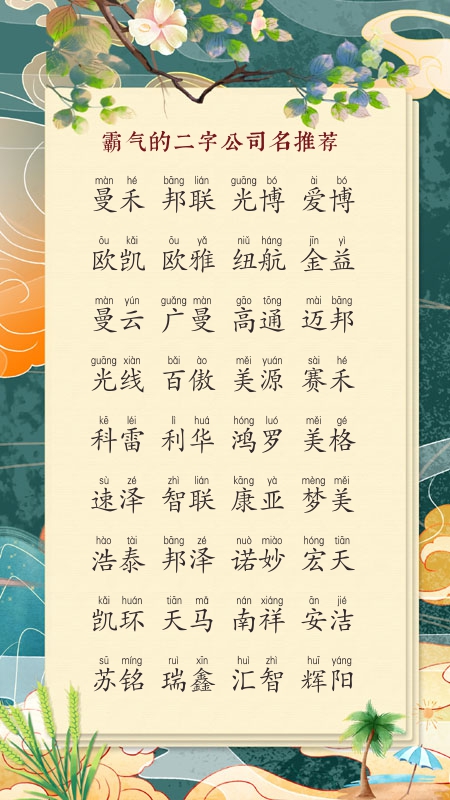 霸气的二字公司名推荐
màn hé bāng lián guāng bó ài bó
曼禾 邦联 光博 爱博
ōu kǎi ōu yǎ niǔ háng jīn yì
欧凯 欧雅 纽航 金益
màn yún guǎng màn gāo tōng mài bāng
曼云 广曼 高通 迈邦
guāng xiàn bǎi ào měi yuán sài hé
光线 百傲 美源 赛禾
kē léi lì huá hóng luó měi gé
科雷 利华 鸿罗 美格
sù zé zhì lián kāng yà mèng měi
速泽 智联 康亚 梦美
hào tài bāng zé nuò miào hóng tiān
浩泰 邦泽 诺妙 宏天
kǎi huán tiān mǎ nán xiáng ān jié
凯环 天马 南祥 安洁
sū míng ruì xīn huì zhì huī yáng
苏铭 瑞鑫 汇智 辉阳